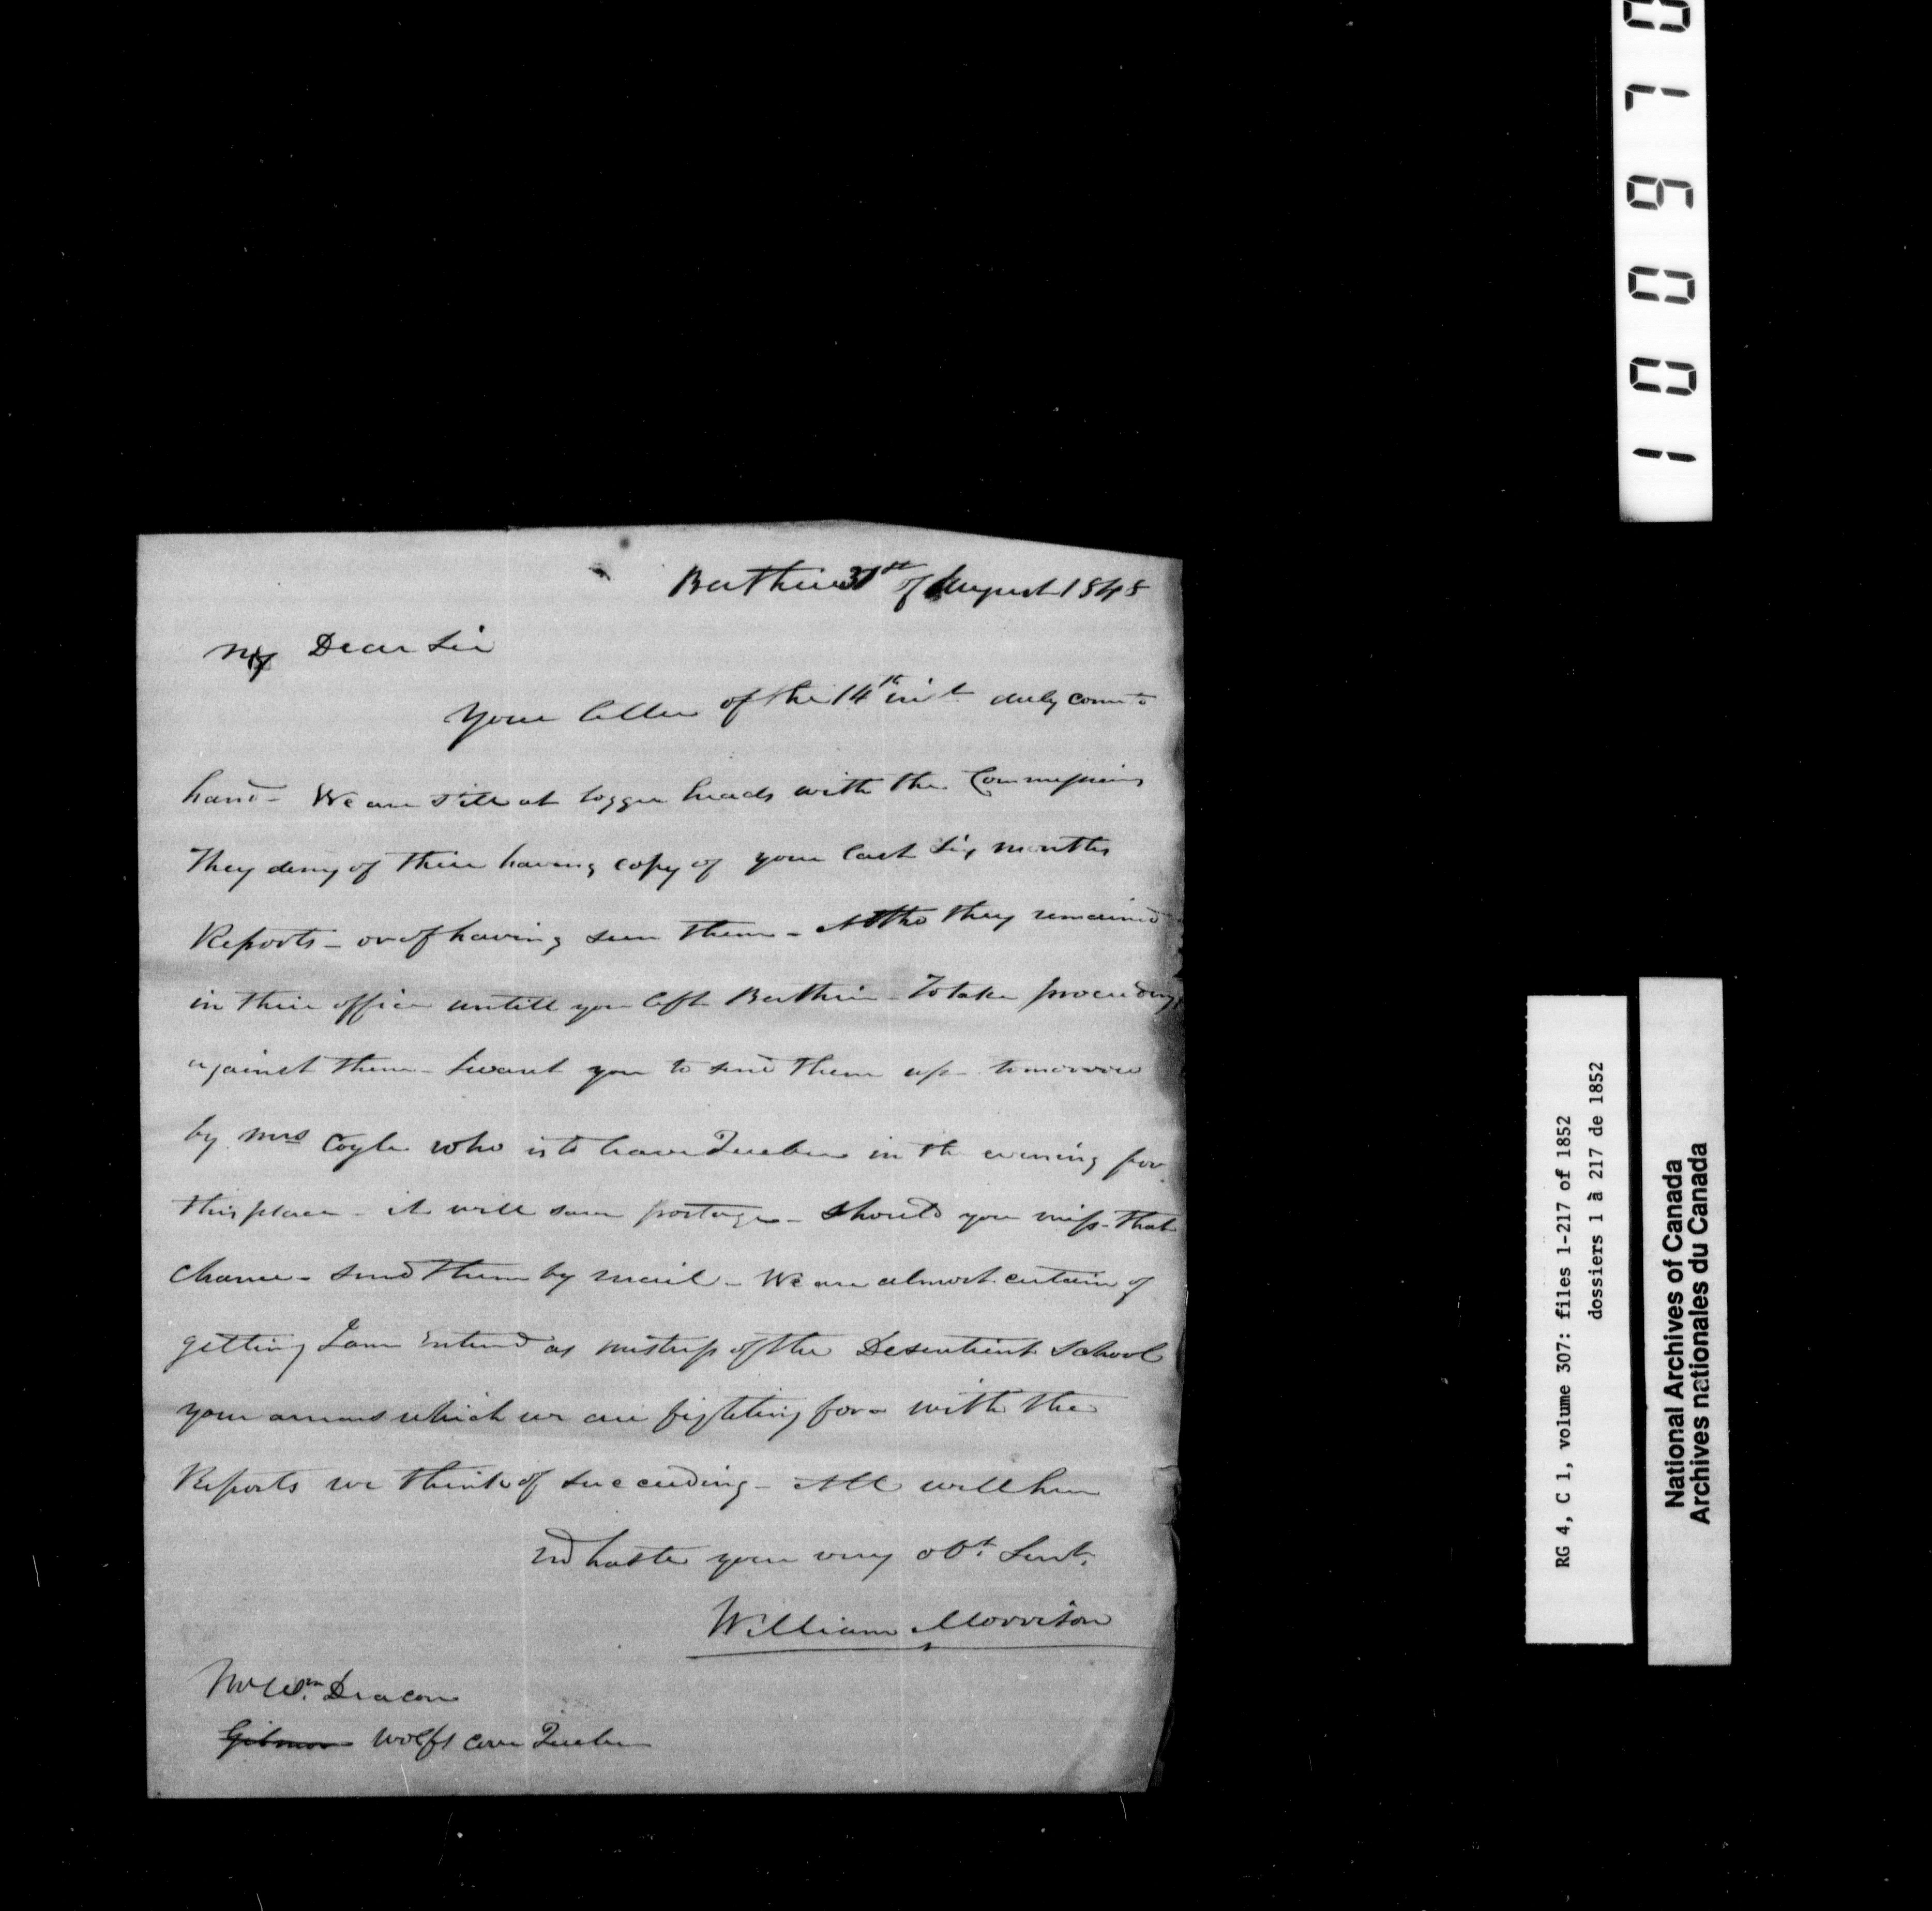 Berthier 31st of August 1848
My Dear Sir
Your letter of the 14th inst duly come to
hand - We are still at logger heads with the Commissioners
They deny of their having copy of your last Six months
Reports - or of having seen them - Altho they remained
in their office untill you left Berthier - To take proceedings
against them - I want you to send them up tomorrow
by Mrs Coyle who is to leave Quebec in the evening for
this place - it will save postage - Should you miss that
chance - send them by mail - We are almost certain of
getting Jane Entered as mistress of the Desentient School
your arrears which we are fighting for - with the
Reports we think of succeeding - All well here
In haste your very obt Servt.
William Morrison
Mr Wm. Deacon
Gibmor Wolfs cove Quebec
RG 4, C 1, volume 307: files 1-217 of 1852
dossiers 1 à 217 de 1852
National Archives of Canada
Archives nationales du Canada